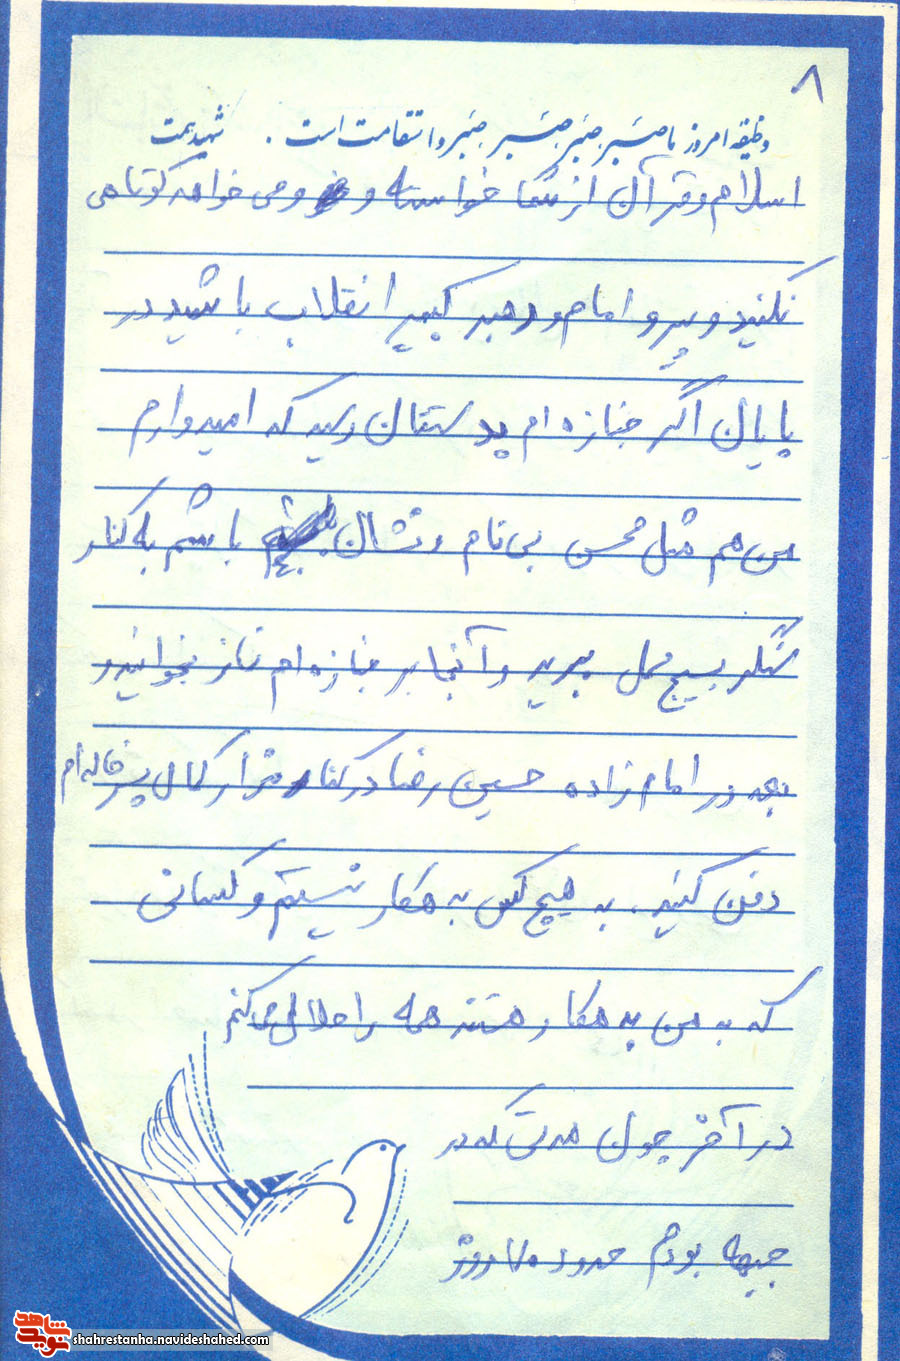 ۸
وظیفه امروز ما صبر، صبر، صبر، صبر و استقامت است. شهید همت
اسلام و قرآن از شما خواسته و و می خواهد کوتاهی
نکنید و پیرو امام و رهبر کبیر انقلاب باشید در
پایان اگر جنازه ام بدستتان رسید که امیدوارم
من هم مثل محسن بی نام و نشان باشم به کنار
سنگر بسیج محل ببرید و آنجا بر جنازه ام نماز بخوانید و
بعد در امام زاده حسین رضا در کنار مزار کمال پسر خاله ام
دفن کنید. به هیچ کس بدهکار نیستم و کسانی
که به من بدهکار هستند همه را حلال می کنم
در آخر چون مدتی که در
جبهه بودم حدود روز
نوید شاهد
shahrestanha.navideshahed.com